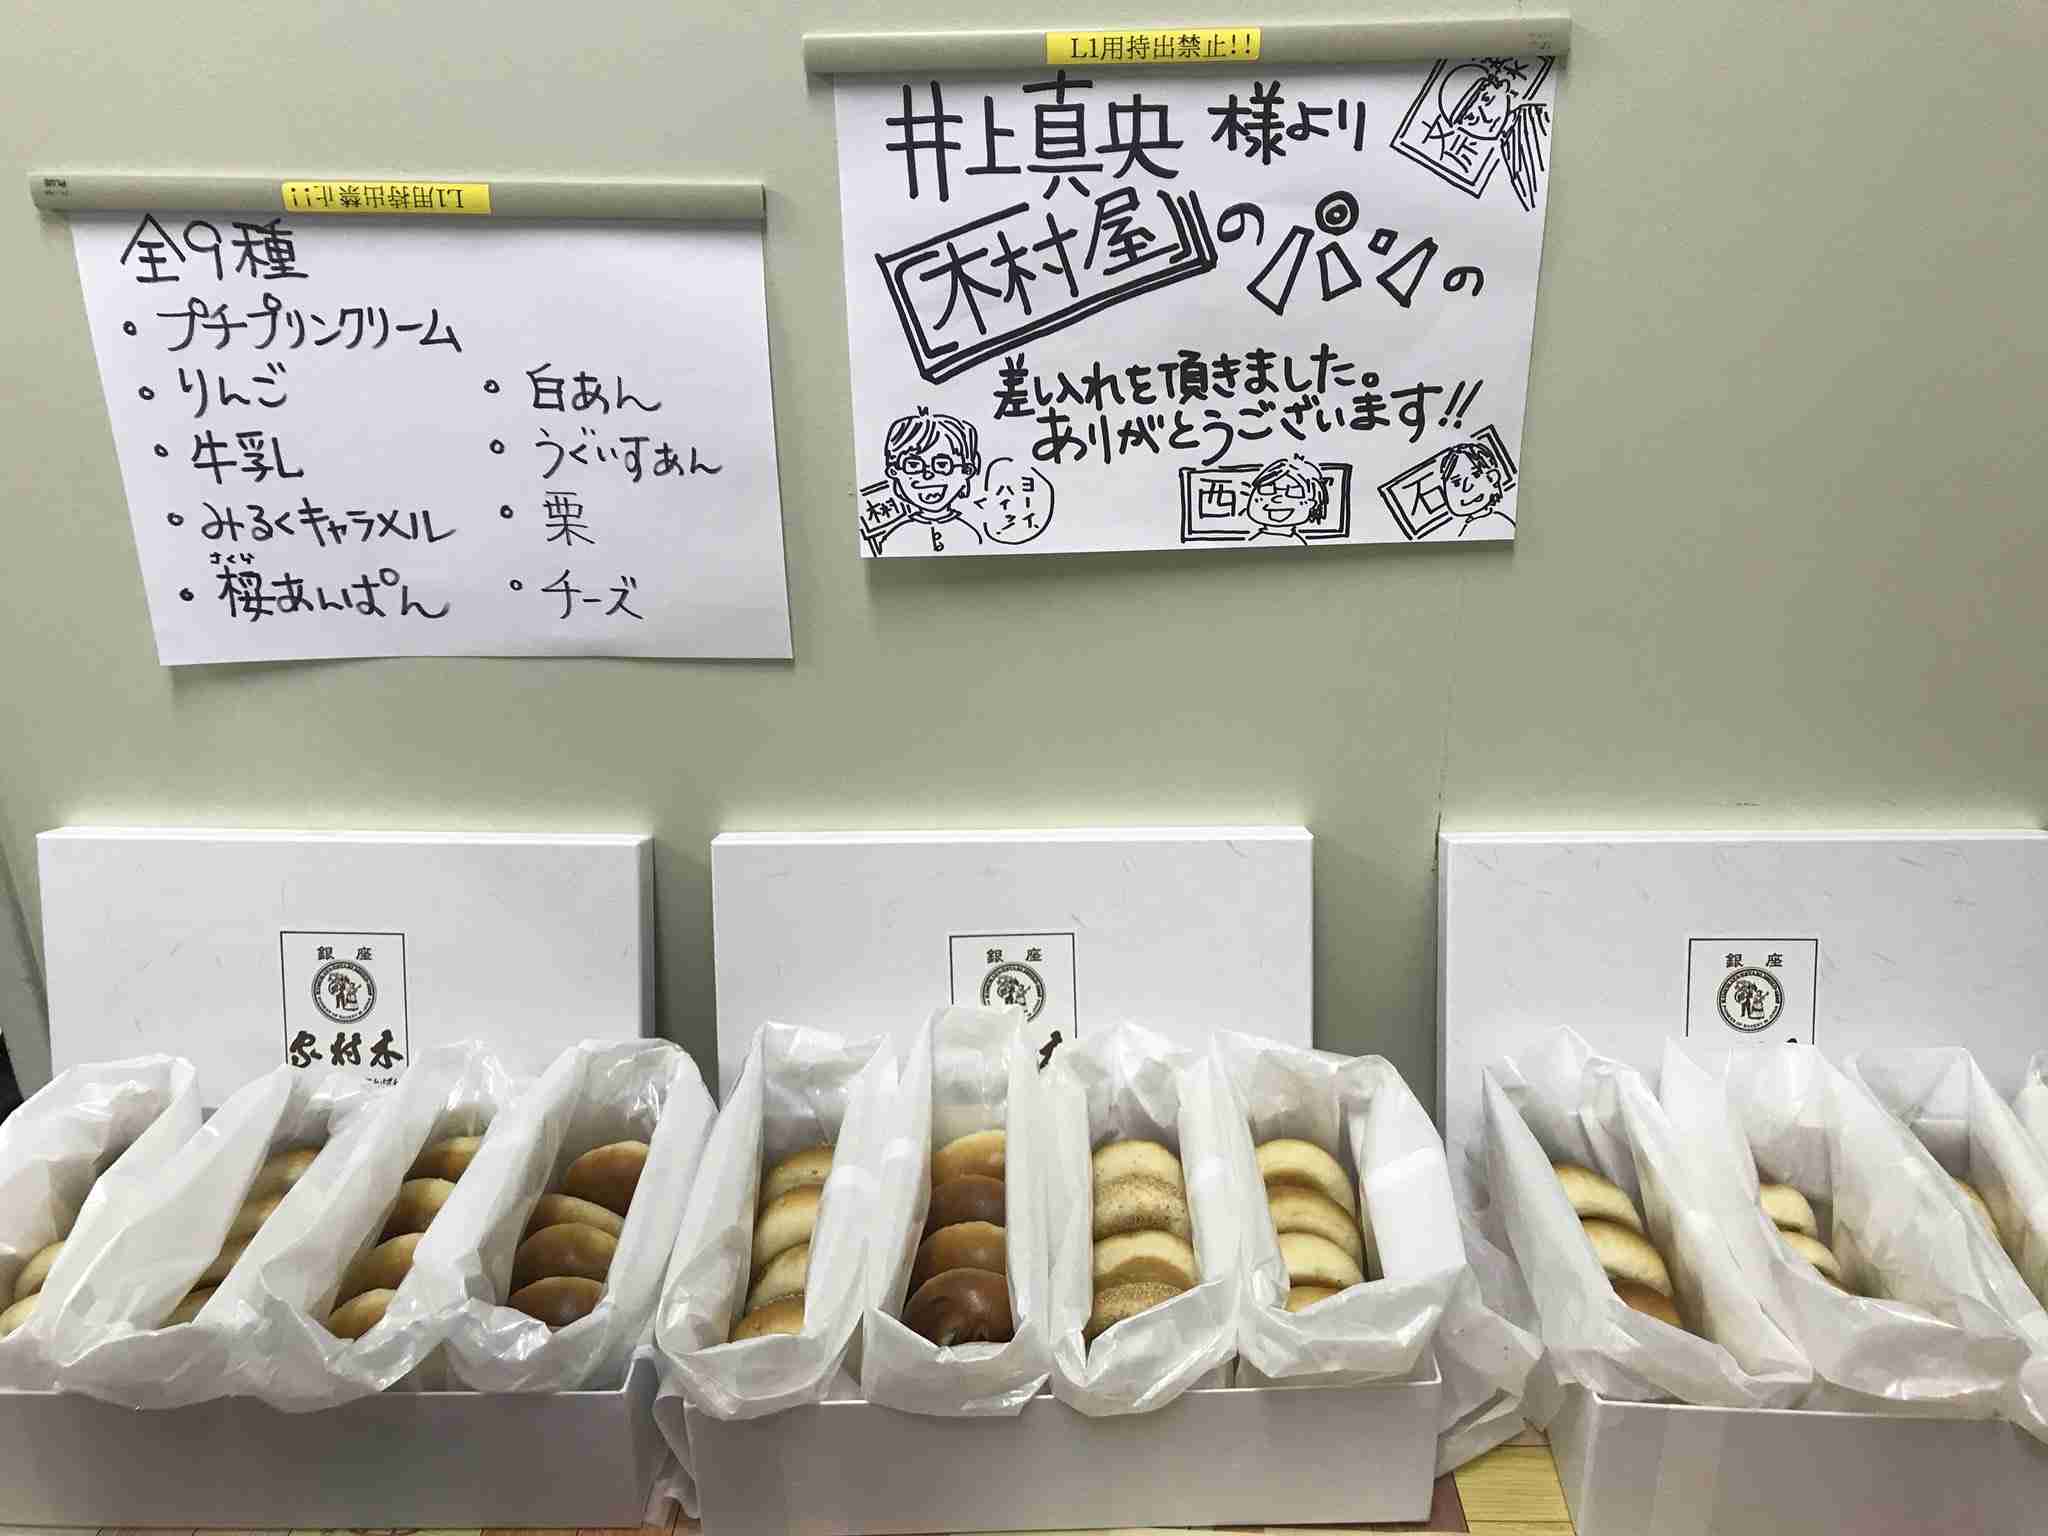 L1用持出禁止!!
全9種
・プチプリンクリーム
・りんご
・牛乳
・みるくキャラメル
さくら
・桜あんぱん
・白あん
・うぐいすあん
・栗
・チーズ
L1用持出禁止!!
井上真央様より
『木村屋』のパンの
差し入れを頂きました。
ありがとうございます!!
木村
ヨーイ、
ハイッ
西
石
銀座
木村家
銀座
銀座